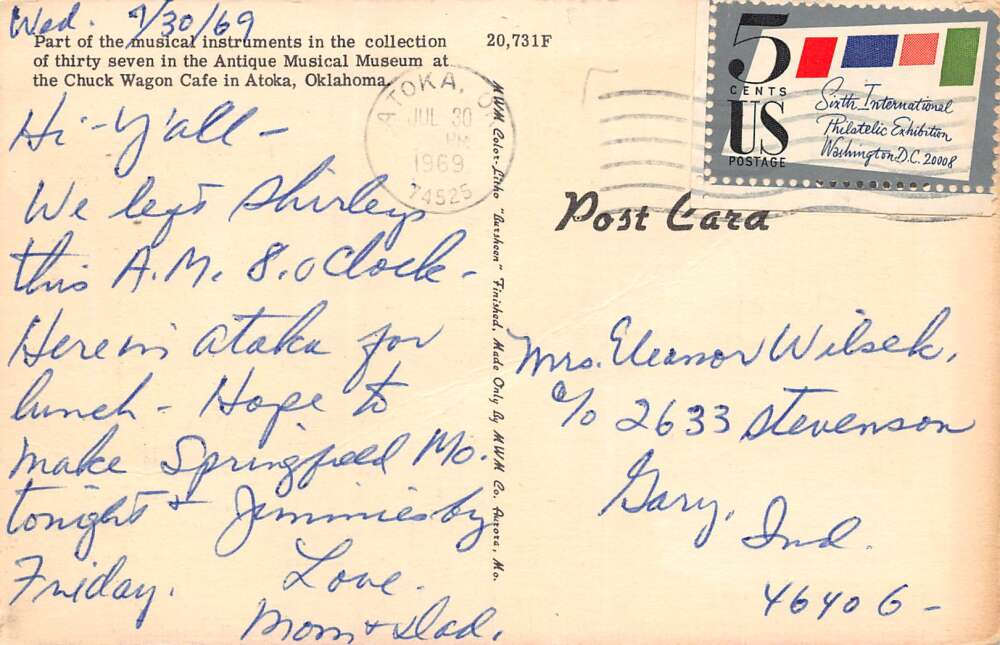 Wed. 7/30/69
Part of the musical instruments in the collection
of thirty seven in the Antique Musical Museum at
the Chuck Wagon Cafe in Atoka, Oklahoma.
20,731F
Hi - Y'all -
We left Shirleys
this A.M. 8.oClock -
Here in Atoka for
lunch - Hope to
make Springfield Mo.
tonight & Jimmies by
Friday. Love.
Mom & Dad.
MWM Color-Litho "Bursheen" Finished, Made Only By MWM Co. Aurora, Mo.
ATOKA, O
JUL 30
PM
1969
74525
5
CENTS
US
POSTAGE
Sixth International
Philatelic Exhibition
Washington D.C. 20008
Post Card
Mrs. Eleanor Wilsek,
c/o 2633 Stevenson
Gary, Ind.
46406 -